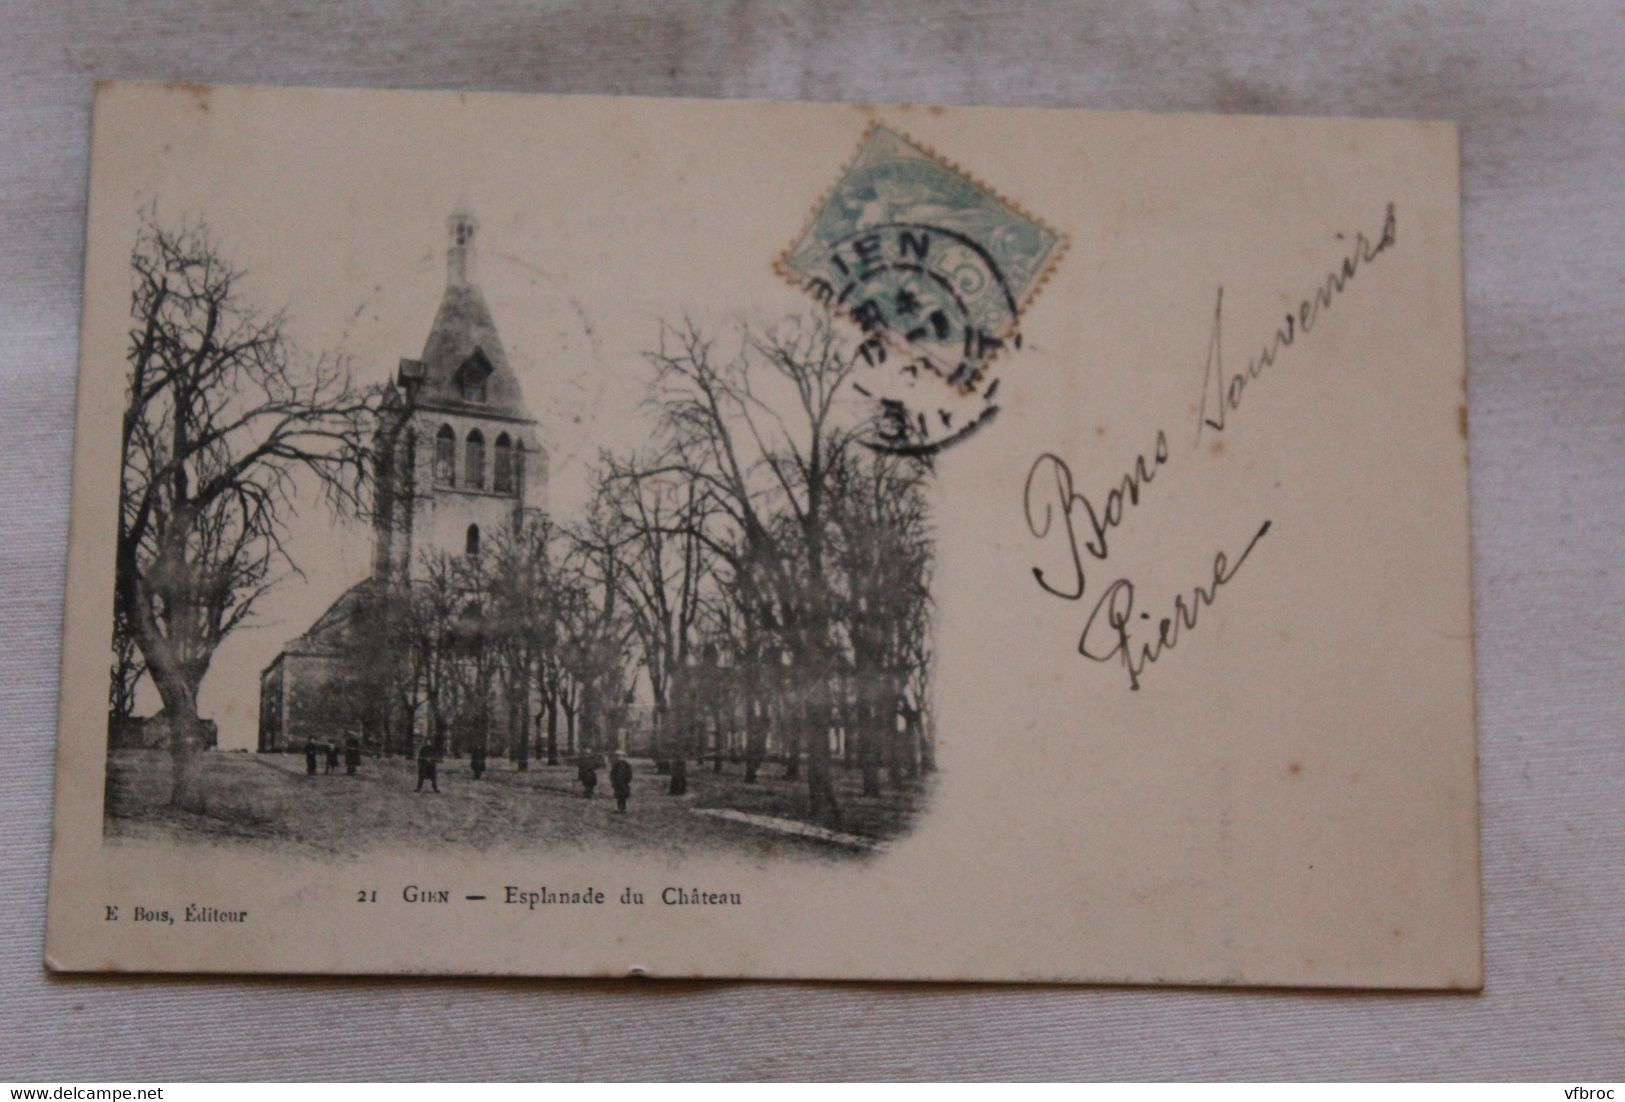 GIEN
5
Bons Souvenirs
Pierre
21 GIEN — Esplanade du Château
E Bois, Éditeur
www.delcampe.net
vfbroc